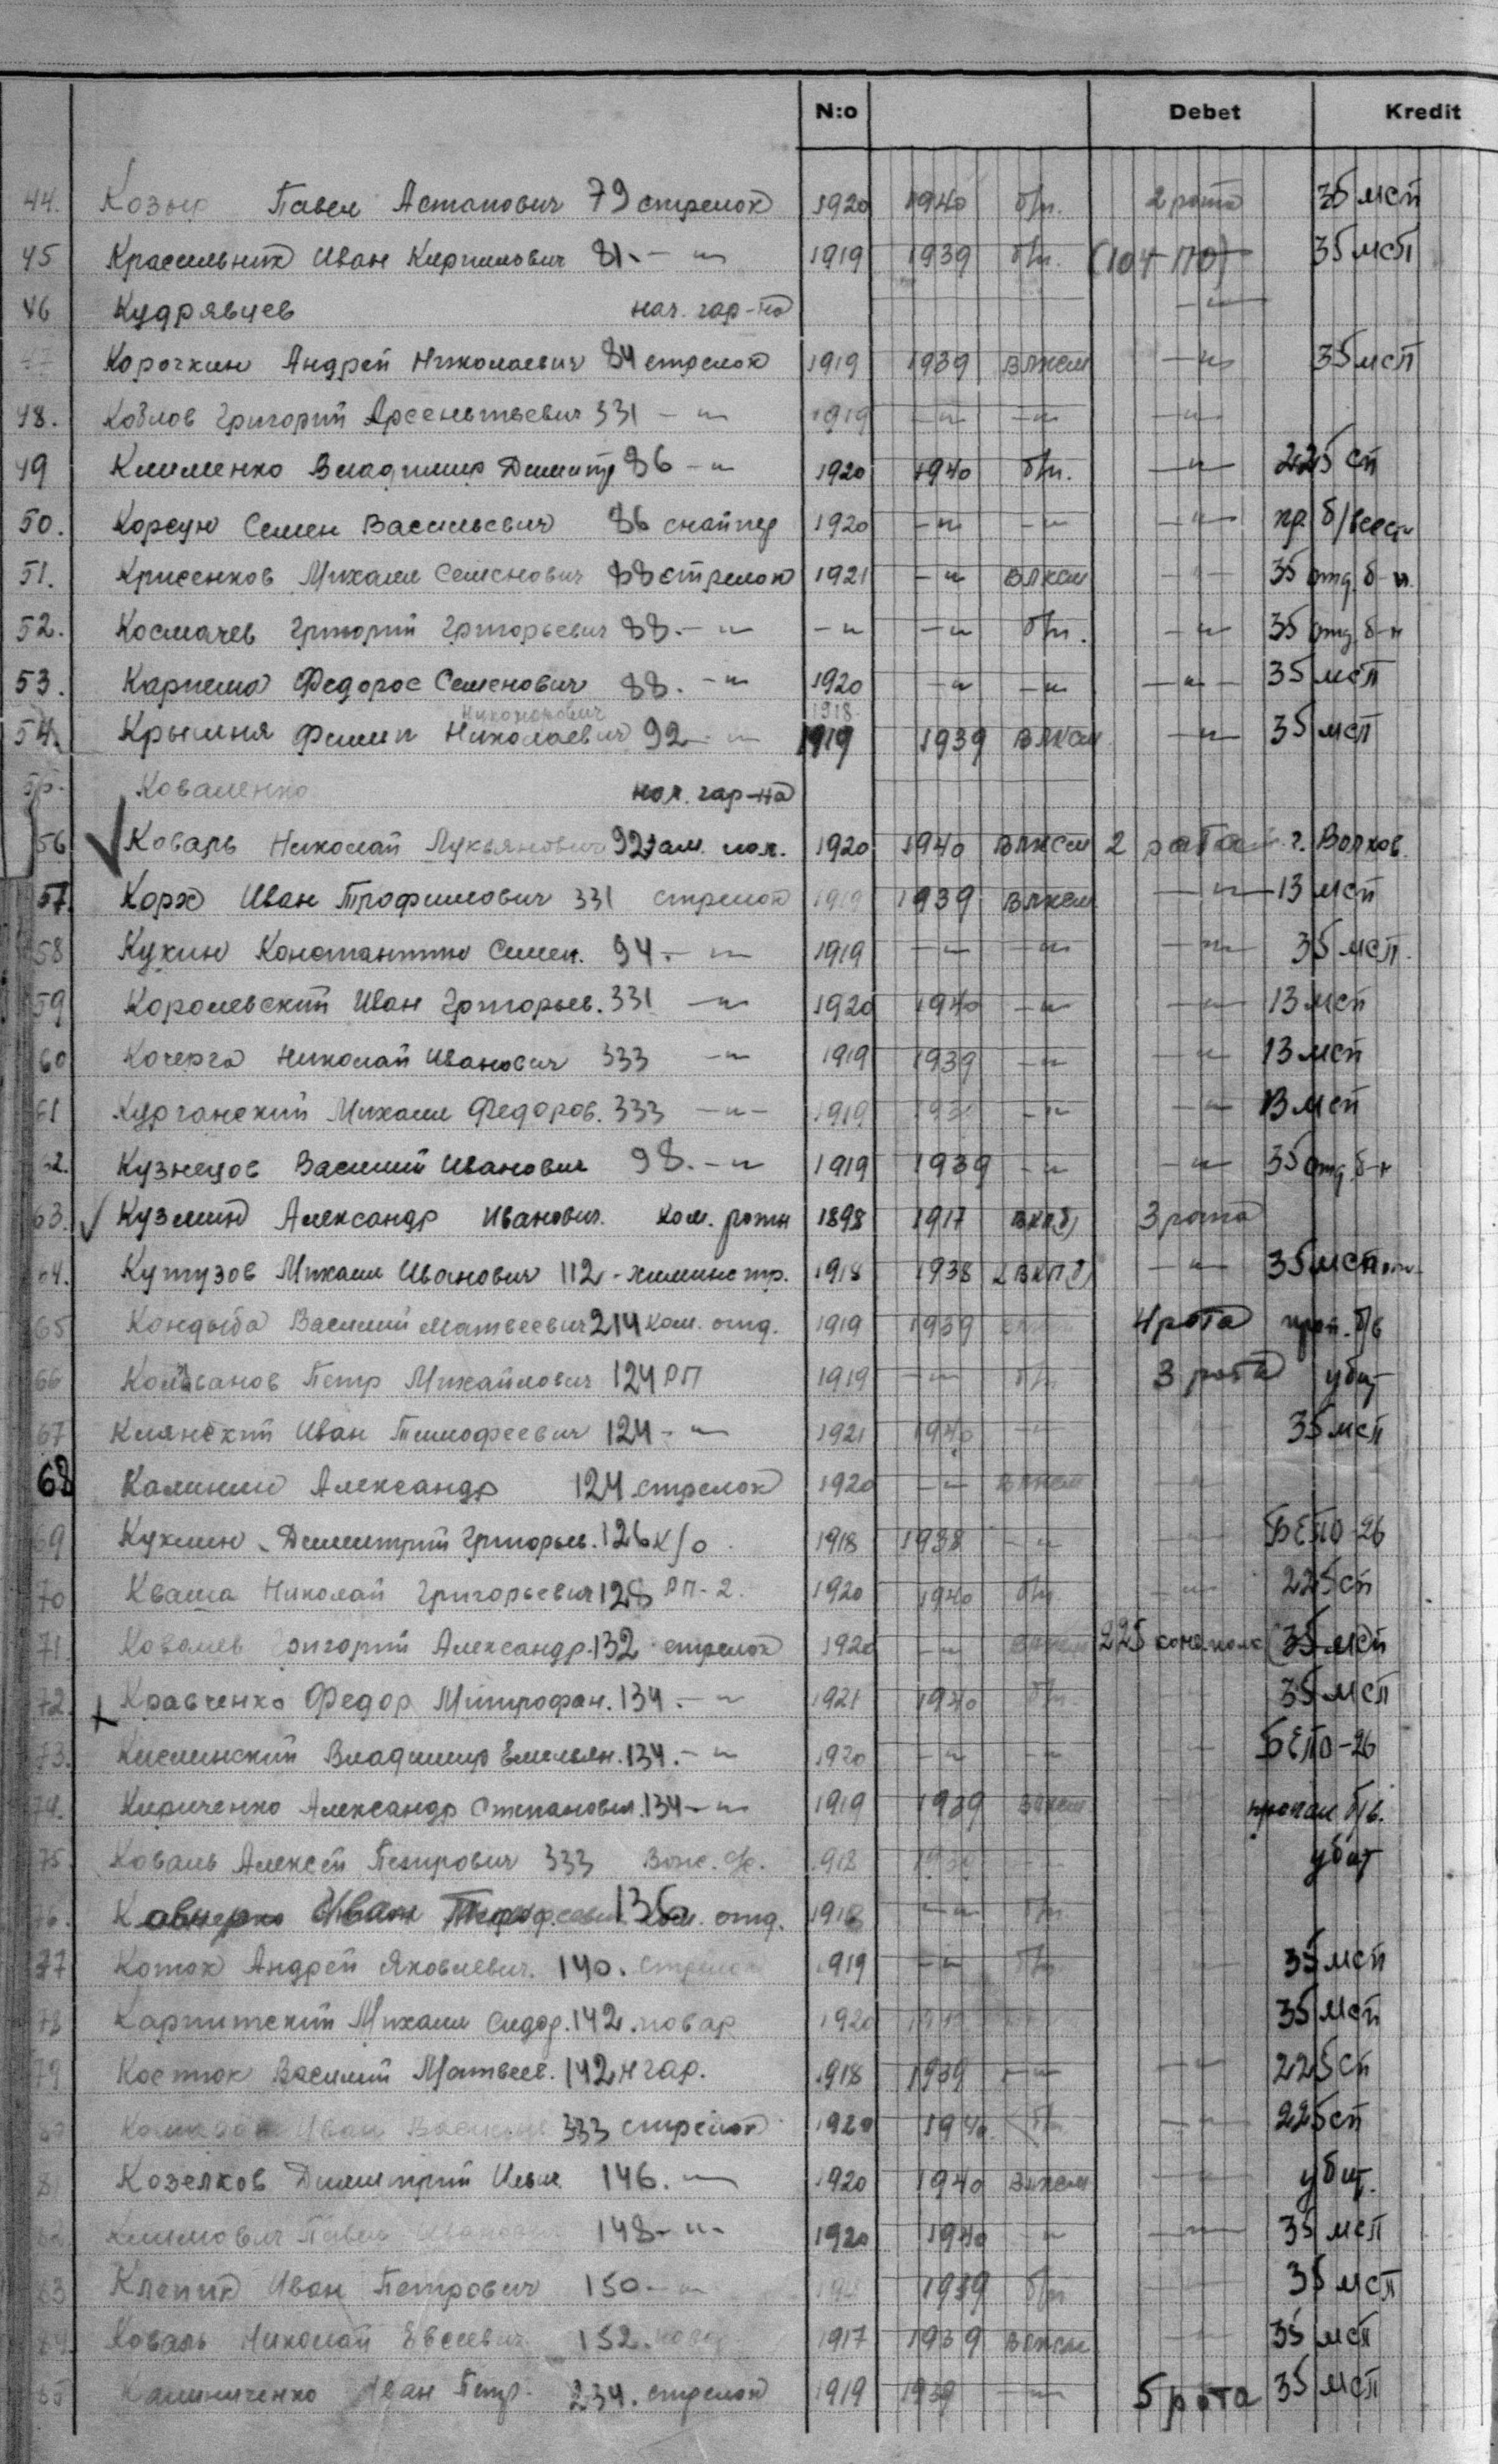 N:o Debet Kredit
44. Козыр Павел Астапович 79 стрелок 1920 1940 б/п. 2 рота 35 мсп
45 Красильник Иван Кирилович 81. -"- 1919 1939 б/п. (104 ПО) 35 мсп
46 Кудрявцев нач. гар-на -"-
47 Корочкин Андрей Николаевич 84 стрелок 1919 1939 ВЛКСМ -"- 35 мсп
48. Козлов Григорий Арсентьевич 331 -"- 1919 -"- -"- -"-
49 Клименко Владимир Димитр 86 -"- 1920 1940 б/п. -"- 225 сп
50. Корсун Семен Васильевич 86 снайпер 1920 -"- -"- -"- пр. б/вести
51. Крисенков Михаил Семенович 88 стрелок 1921 -"- ВЛКСМ -"- 35 отд. б-н.
52. Космачев Григорий Григорьевич 88. -"- -"- -"- б/п. -"- 35 отд. б-н
53. Карпема Федорос Семенович 88. -"- 1920 -"- -"- -"- 35 мсп
Никонович 1918
54. Крымня Филип Николаевич 92 -"- 1919 1939 ВЛКСМ -"- 35 мсп
55. Коваленко нач. гар-на
56 Коварь Николай Лукьянович 92 зам. пол. 1920 1940 ВЛКСМ 2 рота г. Волхов.
57. Корж Иван Трофимович 331 стрелок 1919 1939 ВЛКСМ -"- 13 мсп
58 Кухин Константин Семен. 94. -"- 1919 -"- -"- -"- 35 мсп.
59 Королевский Иван Григорьев. 331 -"- 1920 1940 -"- -"- 13 мсп
60 Кочерга Николай Иванович 333 -"- 1919 1939 -"- -"- 13 мсп
61 Курганский Михаил Федоров. 333 -"- 1919 193 -"- -"- 13 мсп
62. Кузнецов Василий Иванович 98. -"- 1919 1939 -"- -"- 35 отд. б-н
63. Кузмин Александр Иванович. ком. роты 1898 1917 ВКП(б) 3 рота
64. Кутузов Михаил Иванович 112 - химинстр. 1918 1938 ВКП(б) -"- 35 мсп
65 Кондыба Василий Матвеевич 214 ком. отд. 1919 1939 4 рота проп. б/в
66 Петр Михайлович 124 РП 1919 -"- б/п 3 рота убит
67 Клянский Иван Тимофеевич 124 -"- 1921 1940 -"- -"- 35 мсп
68 Калинин Александр 124 стрелок 1920 -"- ВЛКСМ -"-
69 Кухмин Димитрий Григорьев. 126 к/о. 1918 1938 -"- -"- БЕПО-26
70 Кваша Николай Григорьевич 128 РП-2. 1920 1940 б/п -"- 225 сп
71. Ковалев Григорий Александр. 132 стрелок 1920 -"- ВЛКСМ 225 (35 мсп
72. Кравченко Федор Митрофан. 134. -"- 1921 1940 б/п. -"- 35 мсп
73. Кислинский Владимир Емельян. 134. -"- 1920 -"- -"- -"- БЕПО-26
74. Кириченко Александр Степанович. 134 -"- 1919 1939 ВЛКСМ -"- пропал б/в.
75. Коваль Алексей Петрович 333 1918 193 -"- убит
76. Иван Тимофеевич 136 ком. отд. 1918 -"- б/п -"-
77 Коток Андрей Яковлевич. 140. стрелок 1919 -"- б/п -"- 35 мсп
78 Михаил Сидор. 142. повар 1920 35 мсп
79 Костюк Василий Матвеев. 142 н гар. 1918 1939 -"- -"- 225 сп
80 Иван 333 стрелок 1920 1940 б/п -"- 225 сп
81 Козелков Димитрий 146. -"- 1920 1940 ВЛКСМ -"- убит.
82 Климович Павел Иванович 148 -"- 1920 1940 -"- -"- 35 мсп
83 Клепик Иван Петрович 150 -"- 1939 б/п -"- 35 мсп
84. Коваль Николай Евсеевич 152. повар 1917 1939 ВЛКСМ -"- 35 мсп
85 Калиниченко Иван Петр. 234. стрелок 1919 1939 -"- 5 рота 35 мсп